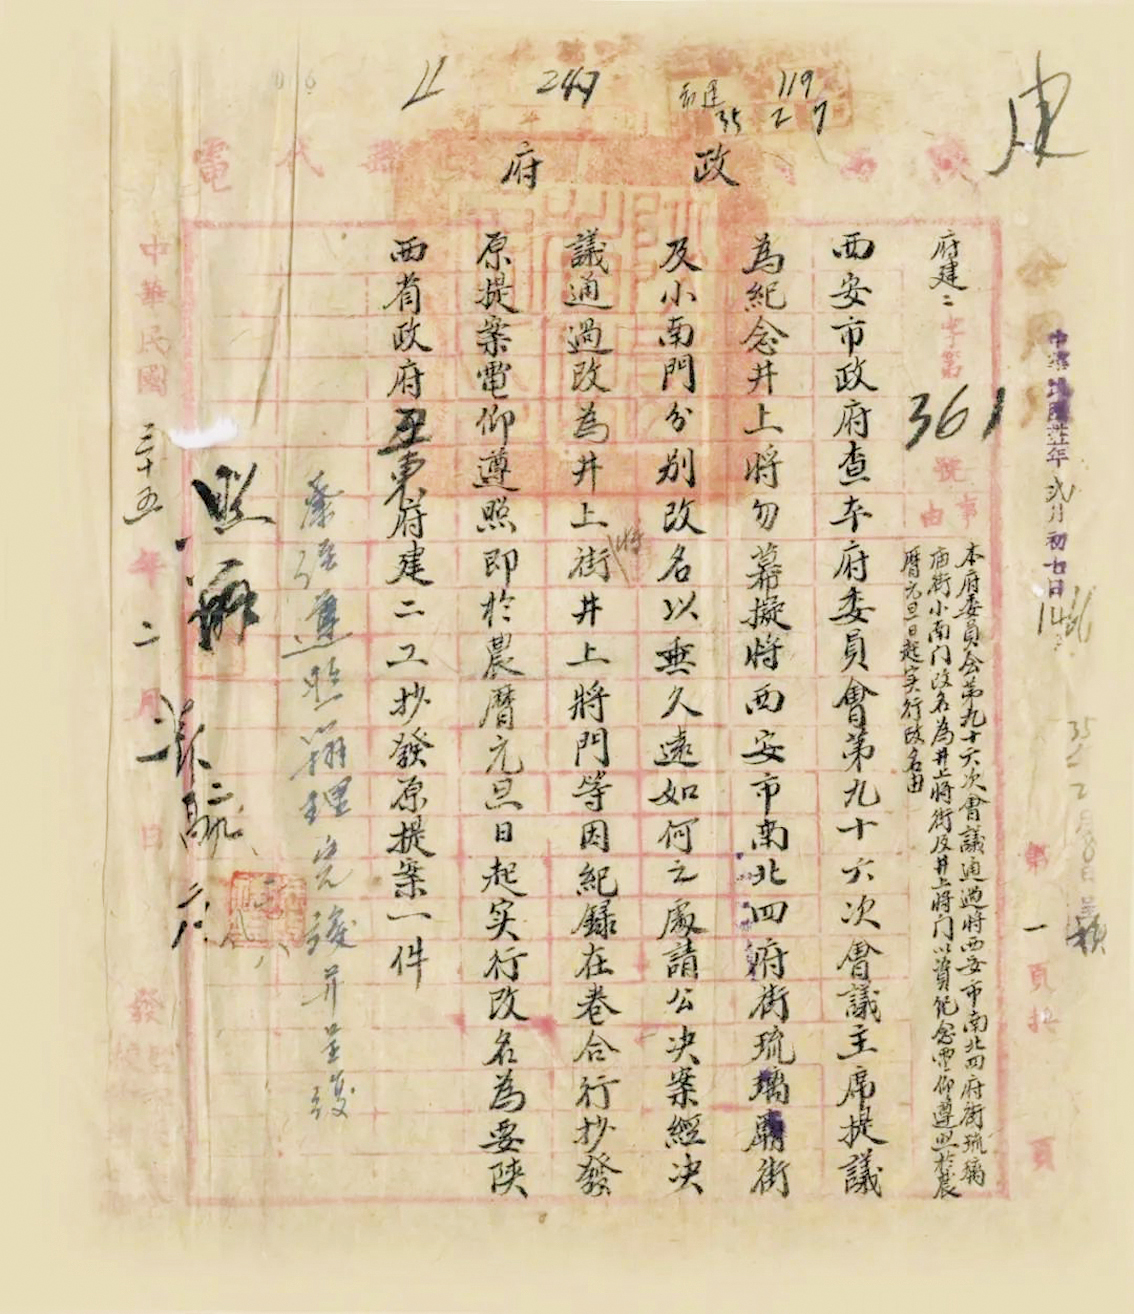 建
119
35 2 7
11
政府
代電
中華民國卅五年弍月初七日
府建二字第361號
事由
本府委員会第九十六次會議通過將西安市南北四府街琉璃
庙街小南门改名為井上將街及井上將门以資紀念電仰遵照於農
曆元旦日起实行改名由
西安市政府查本府委員會第九十六次會議主席提議
為紀念井上將勿幕擬將西安市南北四府街琉璃廟街
及小南門分別改名以垂久遠如何之處請公决案經决
議通過改為井上將街井上將門等因紀錄在卷合行抄發
原提案電仰遵照即於農曆元旦日起实行改名為要陝
西省政府東府建二工抄發原提案一件
中華民國三十五年二月日發
第一頁共頁